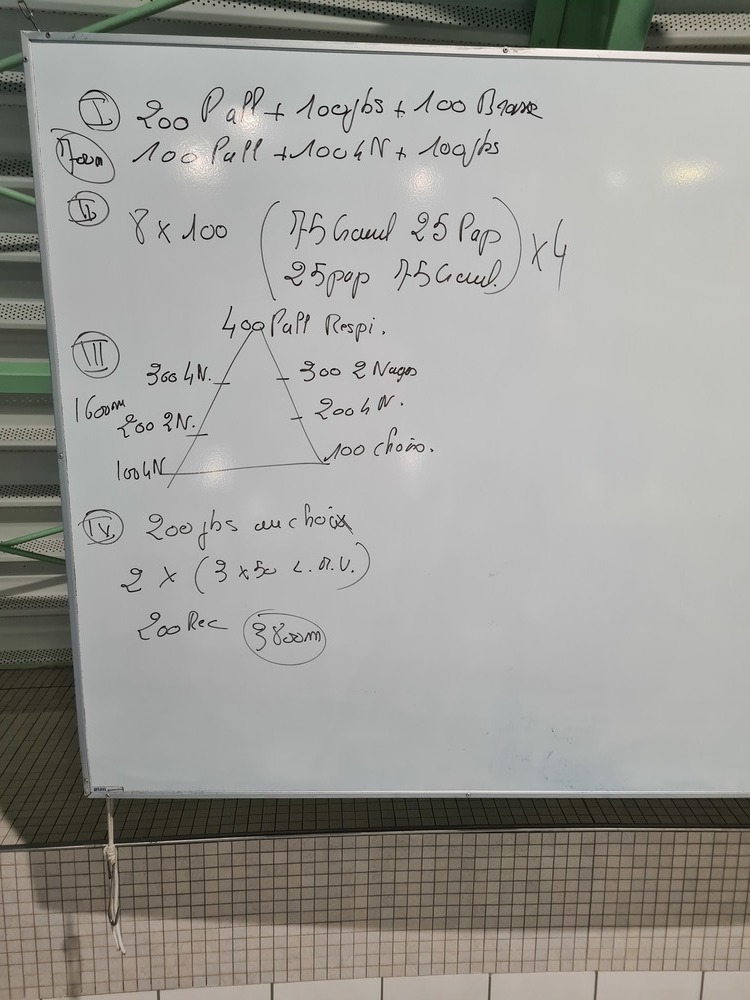 I 200 Pull + 100 jbs + 100 Brasse
700m 100 Pull + 100 4N + 100 jbs
II 8 x 100 (75 Crawl 25 Pap
25 pap 75 Crawl.) x 4
III 400 Pull Respi.
300 4N. 300 2 Nages
1600m
200 2N. 200 4N.
100 4N 100 choix.
IV 200 jbs au choix
2 x (3 x 50 L.M.V.)
200 Rec 3800m